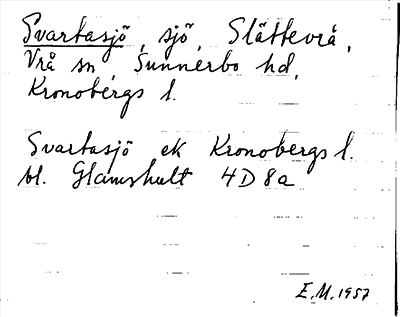 Svartasjö, sjö, Slättevrå,
Vrå sn, Sunnerbo hd,
Kronobergs l.
Svartasjö ek Kronobergs l.
bl. Glamshult 4D8a
E.M. 1957